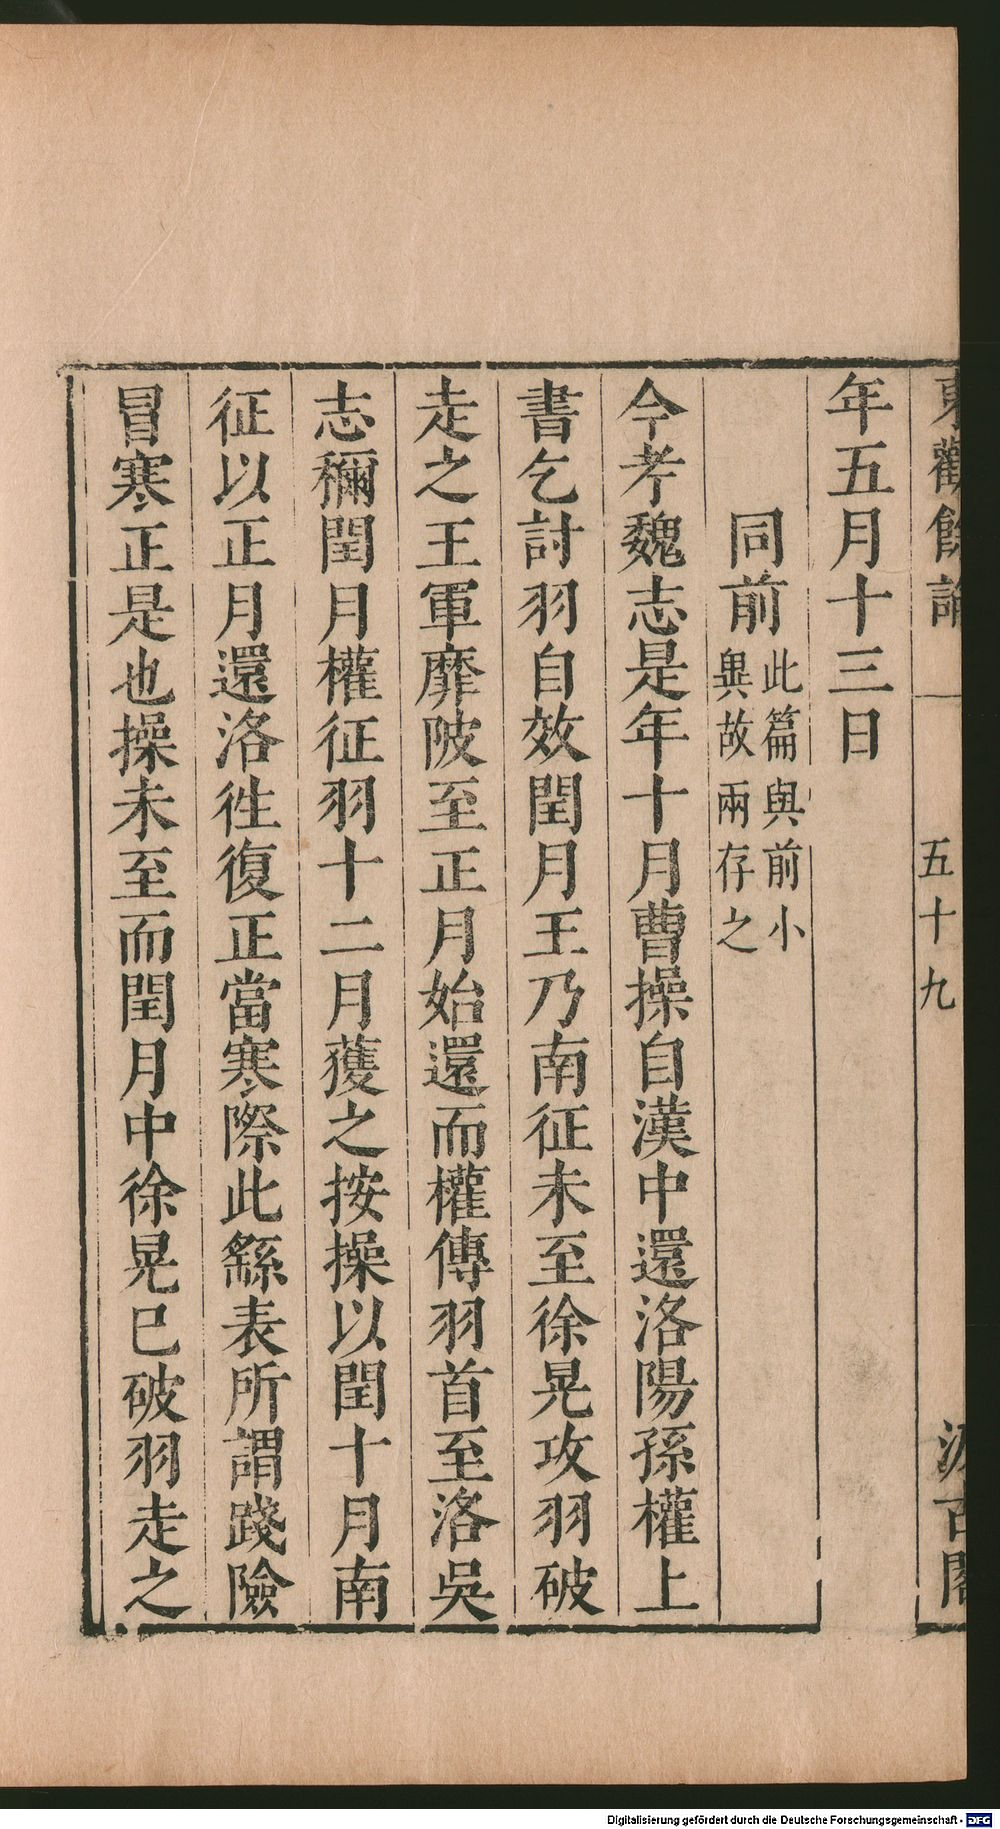 東觀餘論
五十九
汲古閣
年五月十三日
同前 此篇與前小
異故兩存之
今考魏志是年十月曹操自漢中還洛陽孫權上
書乞討羽自效閏月王乃南征未至徐晃攻羽破
走之王軍靡陂至正月始還而權傳羽首至洛吳
志稱閏月權征羽十二月獲之按操以閏十月南
征以正月還洛徃復正當寒際此繇表所謂踐險
冒寒正是也操未至而閏月中徐晃已破羽走之
Digitalisierung gefördert durch die Deutsche Forschungsgemeinschaft - DFG